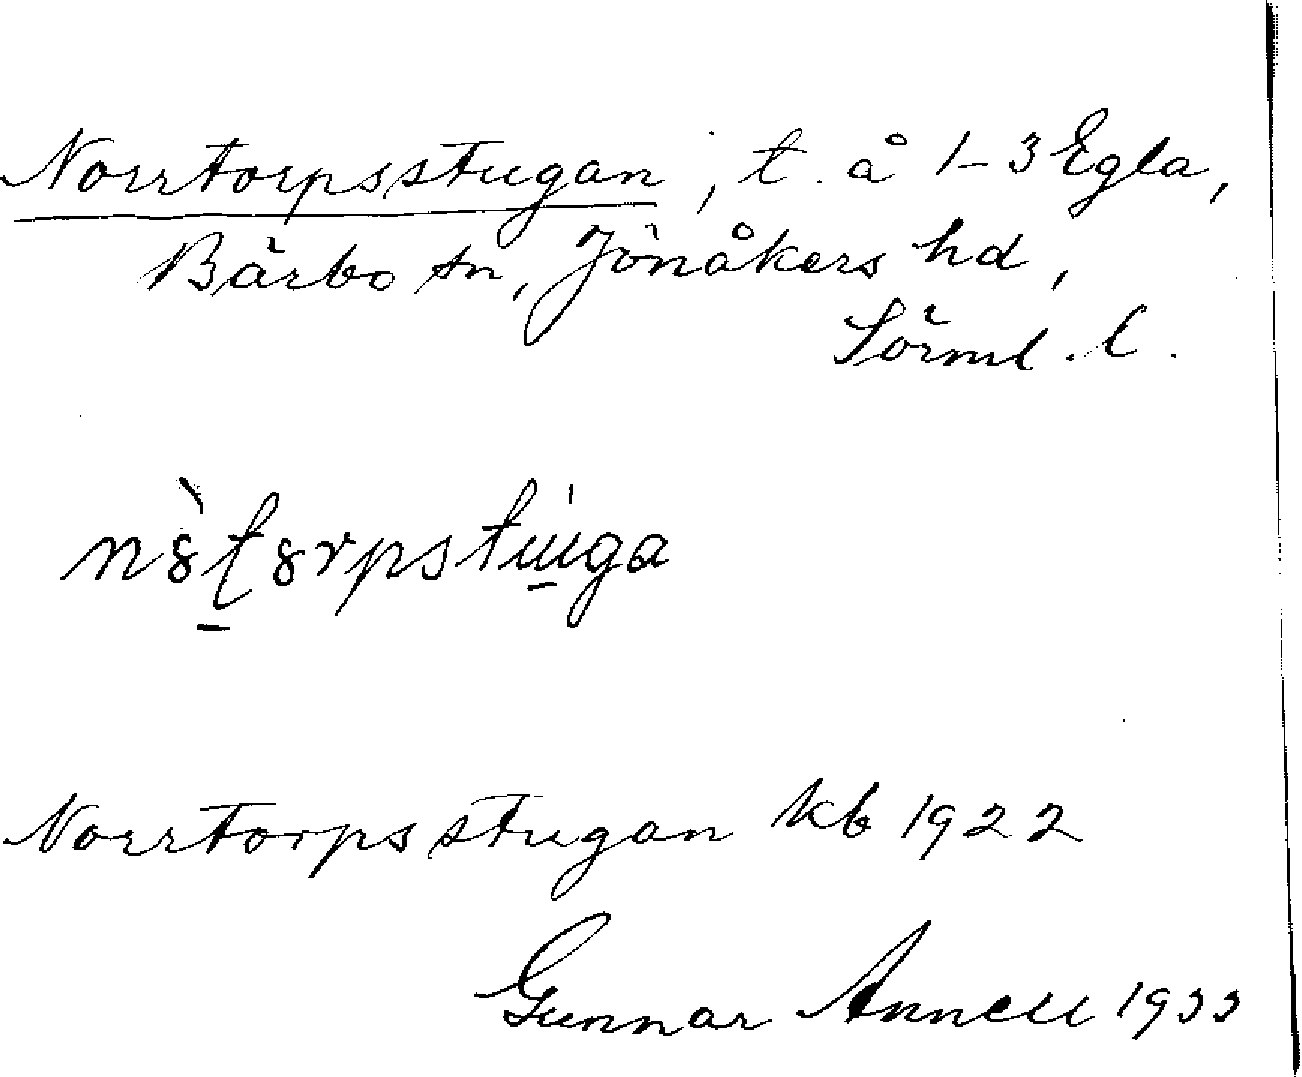 Norrtorpsstugan, t. å 1-3 Egla,
Bärbo sn, Jönåkers hd,
Sörml. l.
Norrtorpsstugan kb 1922
Gunnar Annell 1933